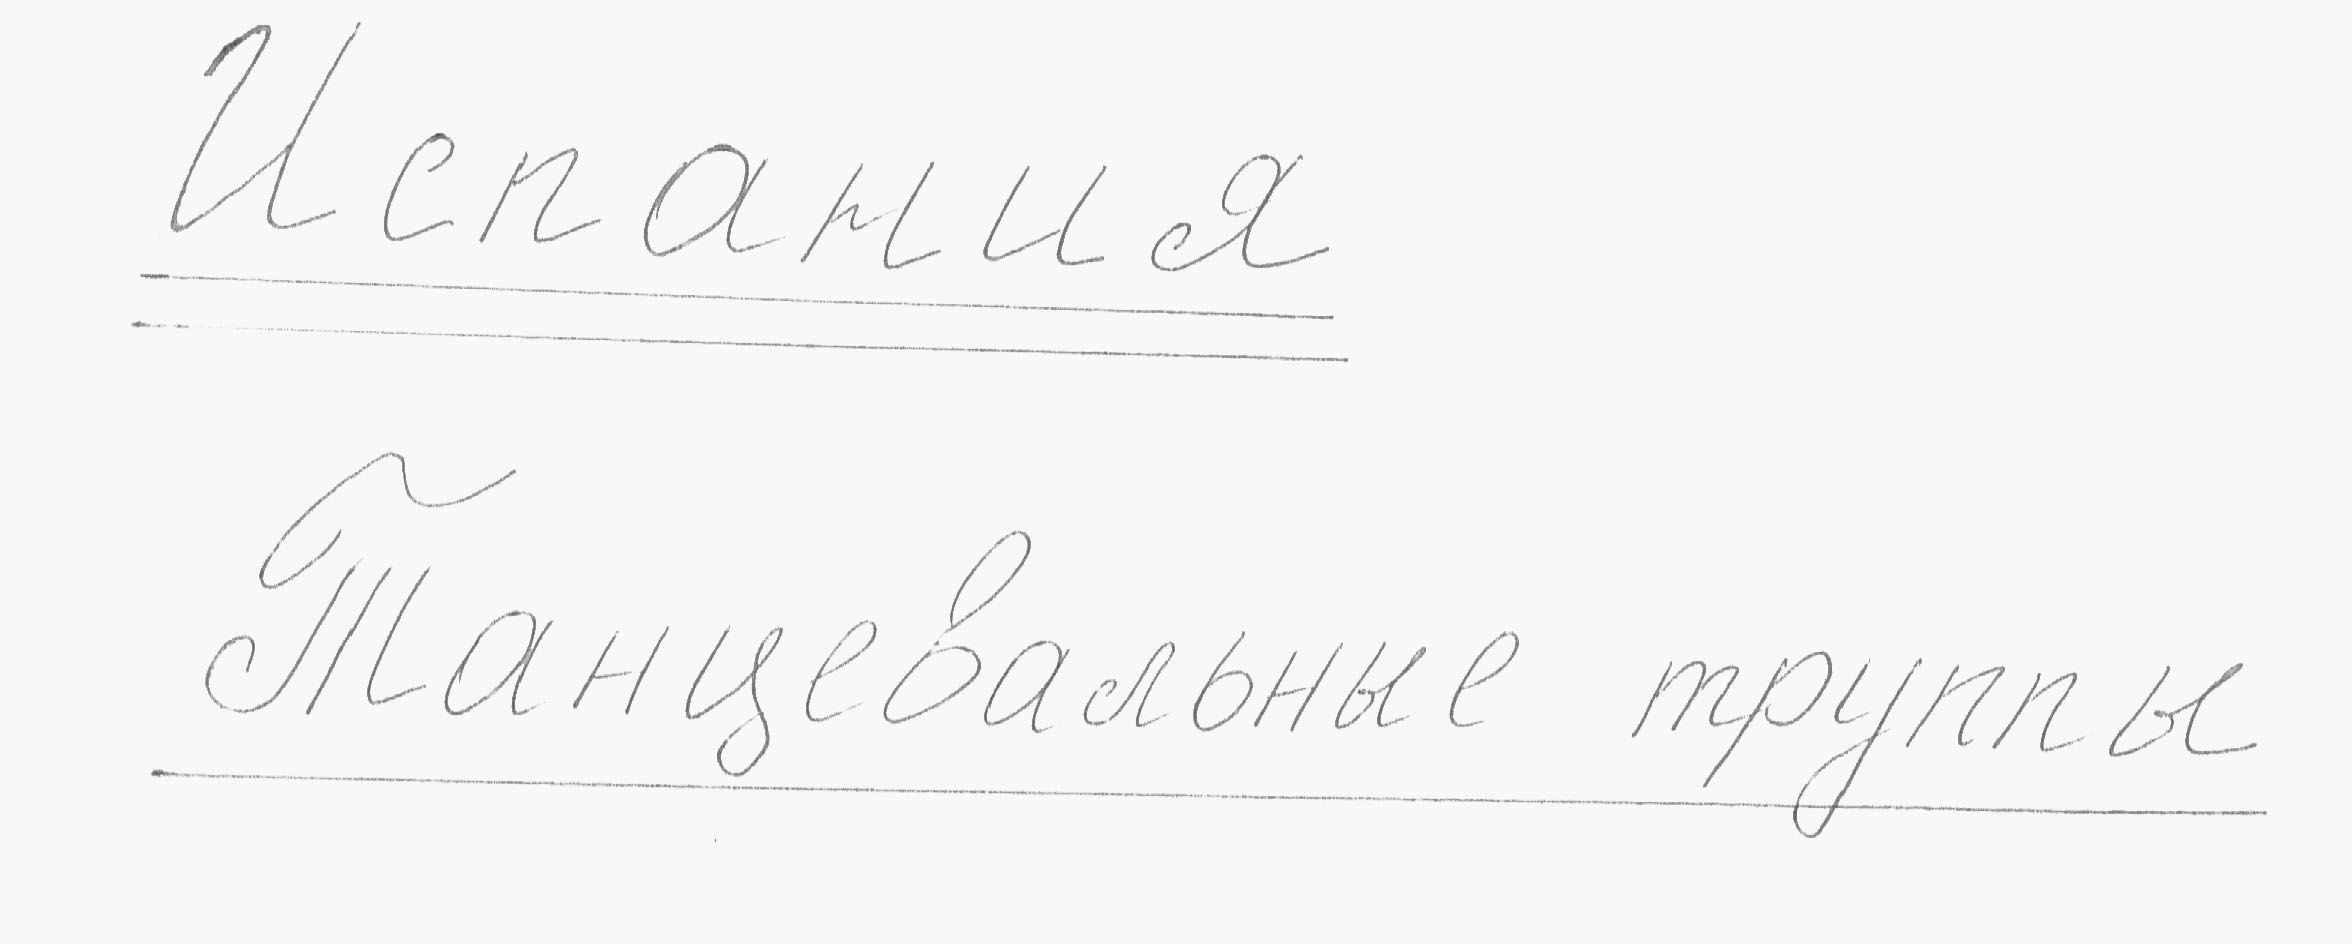 Испания
Танцевальные труппы